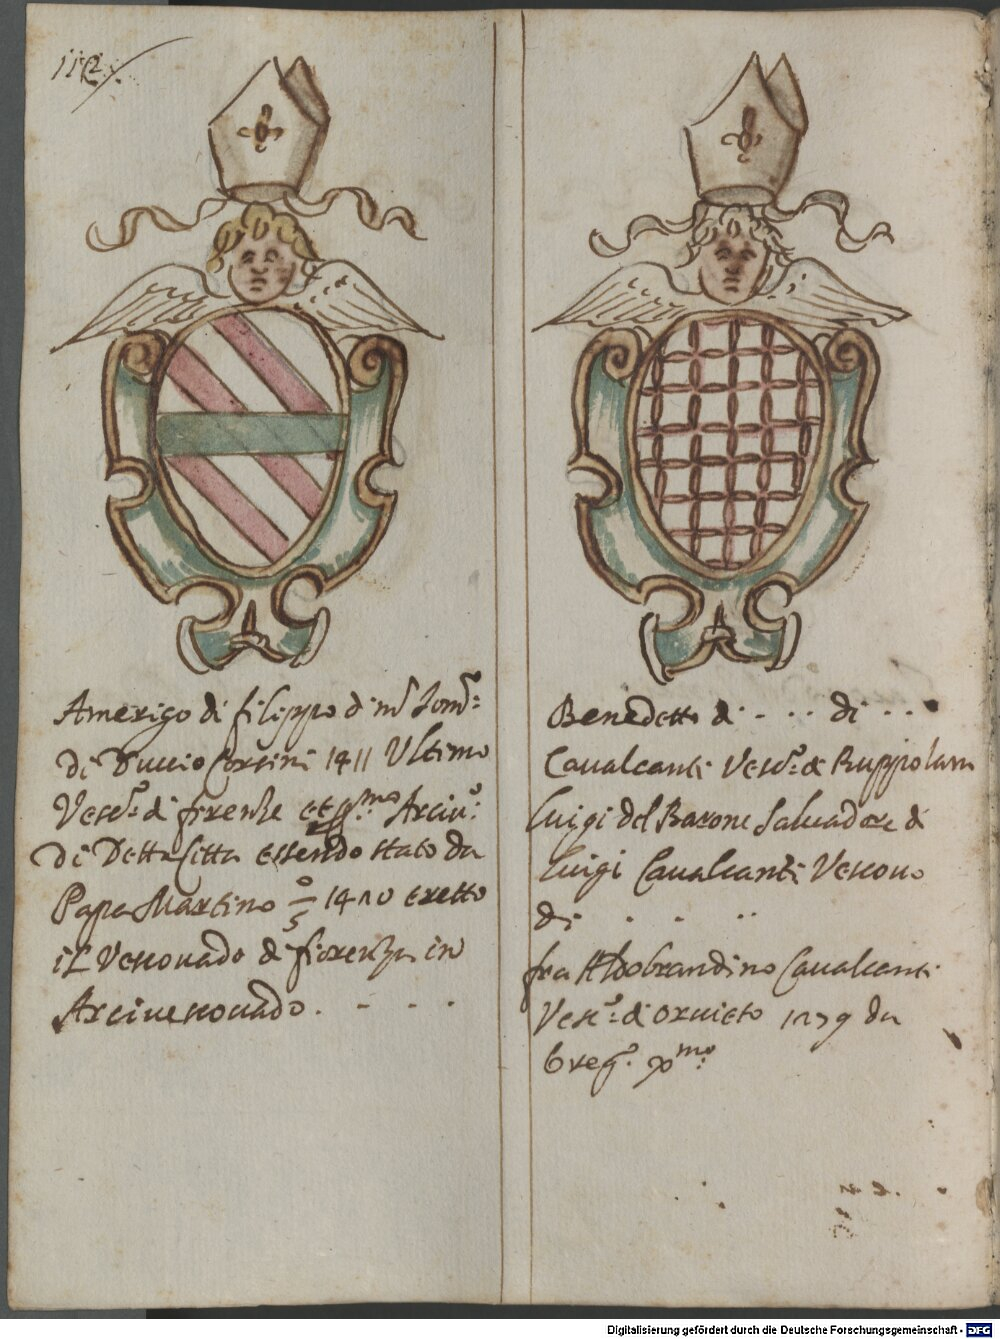 112
Amerigo di filippo di m.r Tom.o
di Duccio Corsini 1411 Ultimo
Vesc.o di firenze et pmo Arciv.o
di Detta Citta essendo stato da
Papa Martino 5.o 1420 eretto
il Vescovado di fiorenza in
Arcivescovado. - - . .
Benedetto di - . . di . . .
Cavalcanti Vesc.o di
Luigi del Barone Salvadore di
Luigi Cavalcanti Vescovo
di . . . ..
fra Aldobrandino Cavalcanti
Vesc.o di Orvieto 1279 da
Greg.o xmo
Digitalisierung gefördert durch die Deutsche Forschungsgemeinschaft - DFG